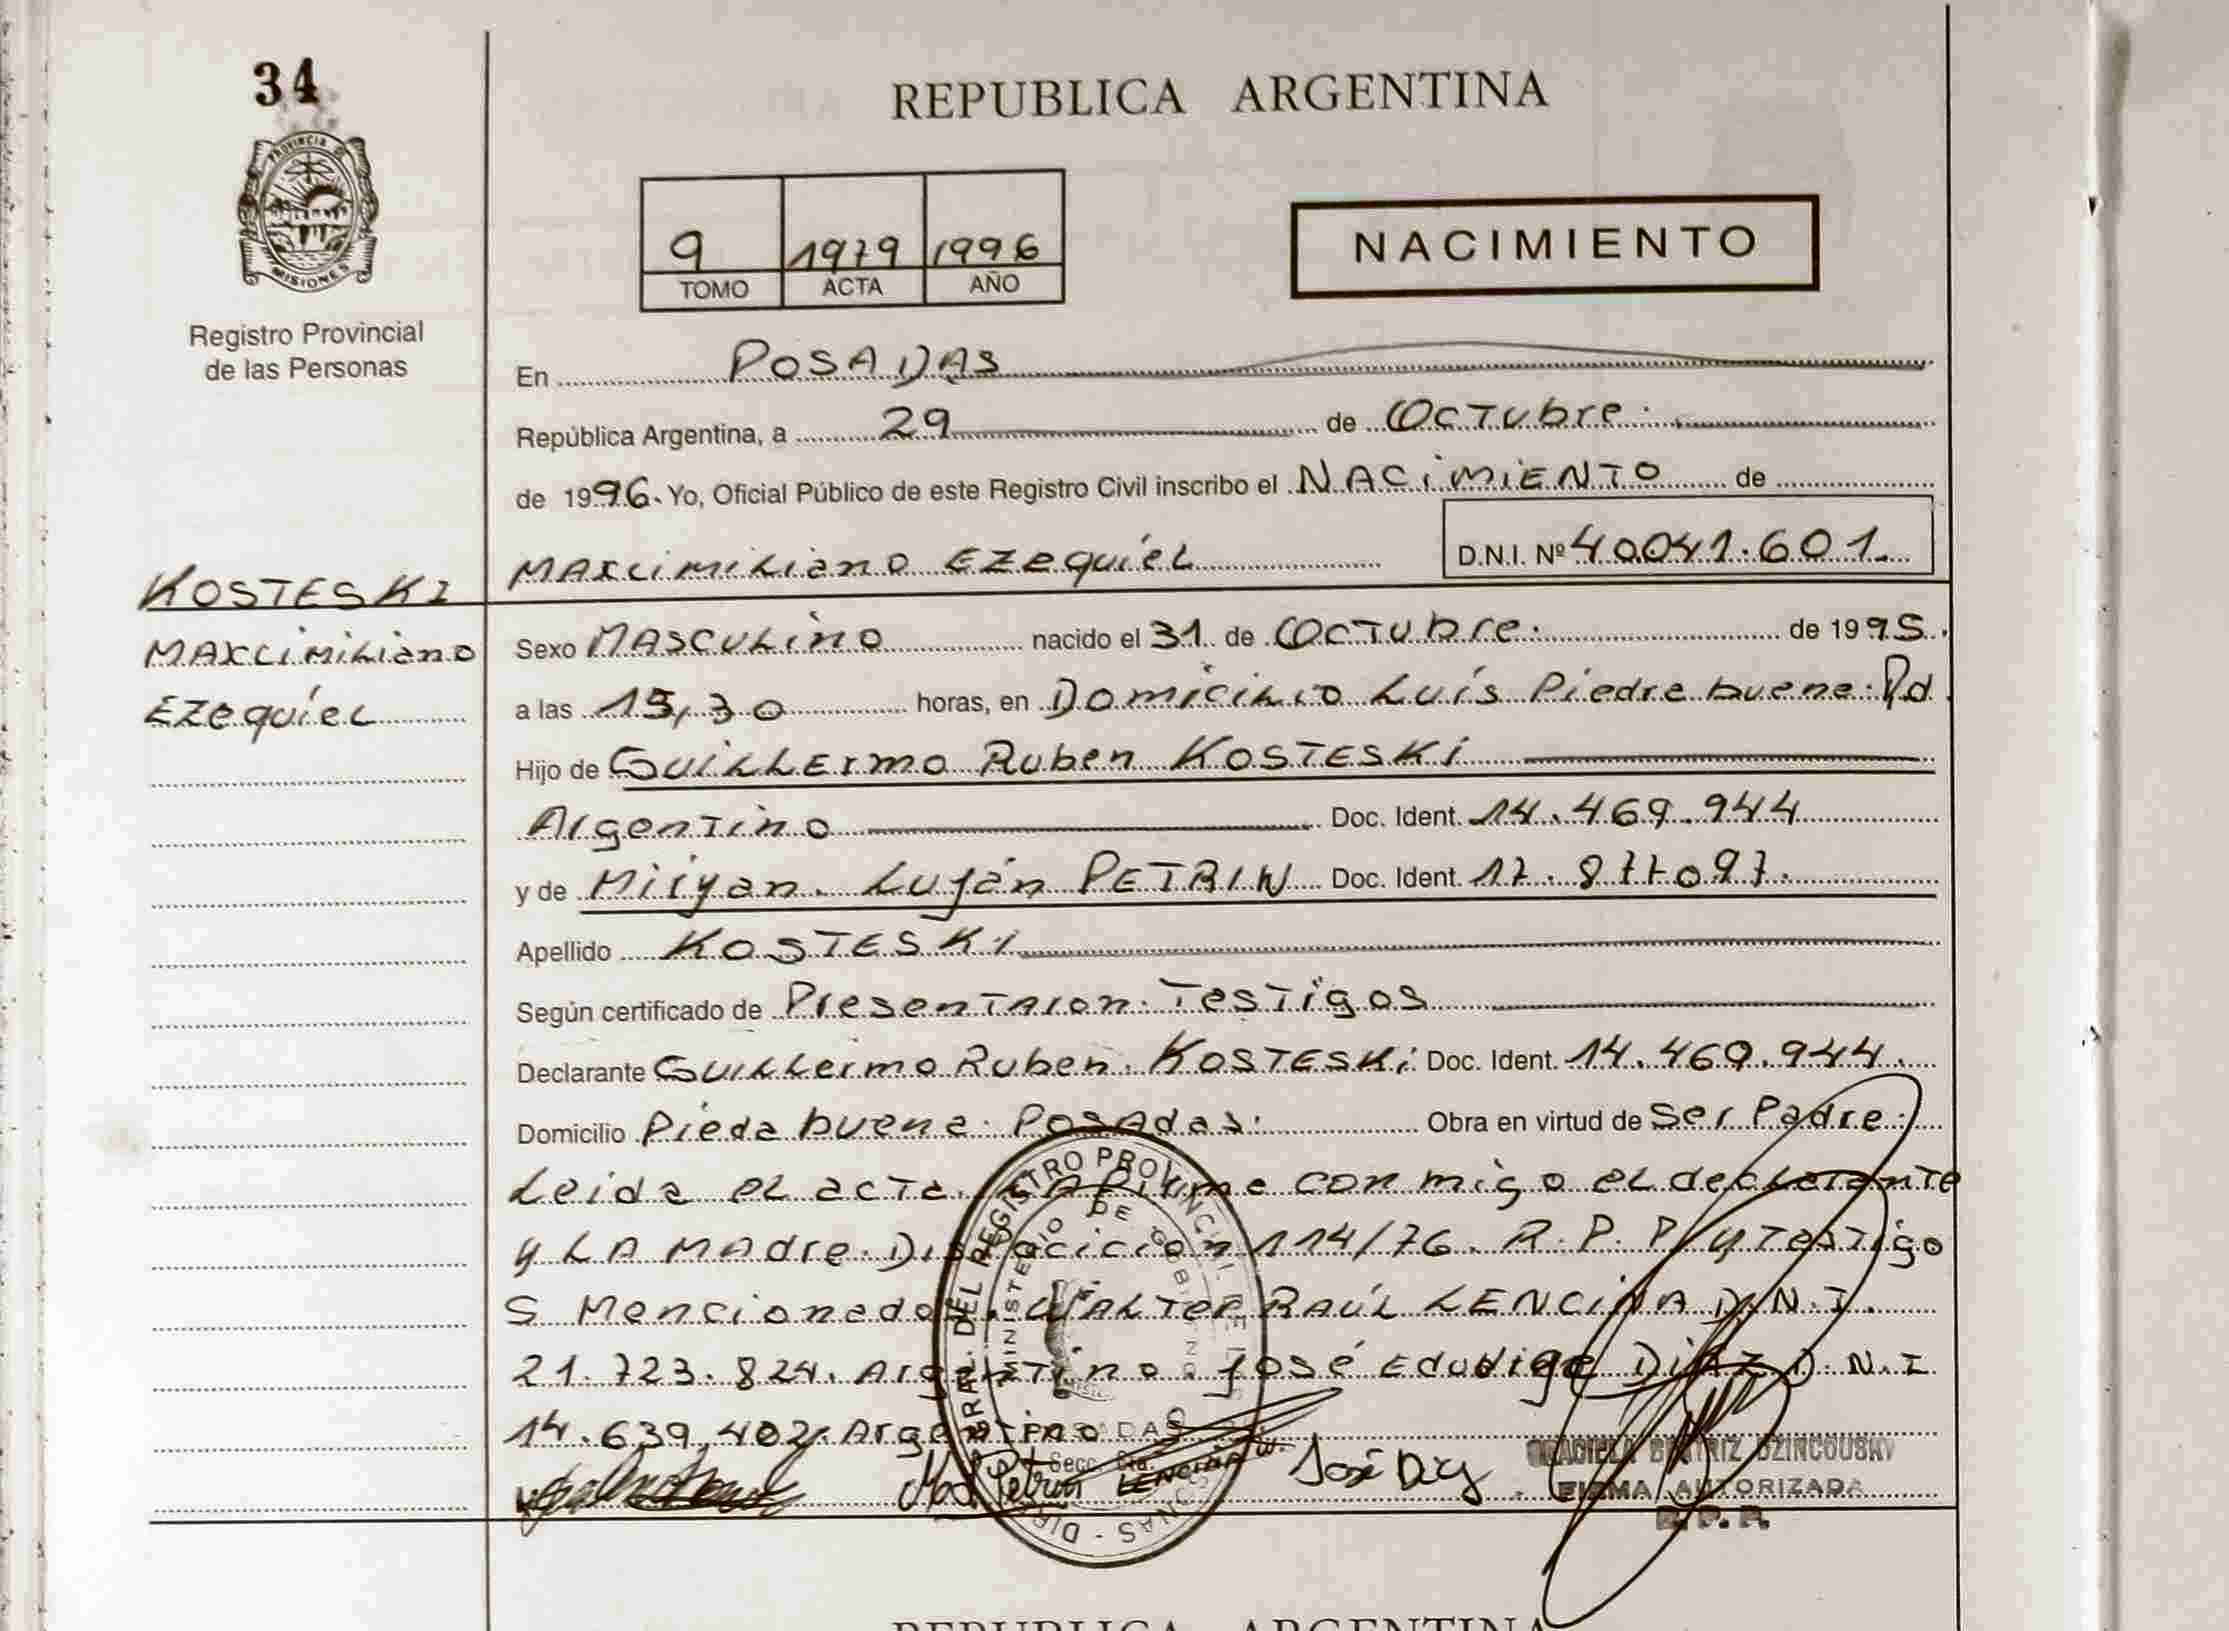 34
REPUBLICA ARGENTINA
PROVINCIA DE
MISIONES
Registro Provincial
de las Personas
9 1979 1996
TOMO ACTA AÑO
NACIMIENTO
En POSADAS
República Argentina, a 29 de Octubre.
de 1996. Yo, Oficial Público de este Registro Civil inscribo el NACIMIENTO de
MAXCIMILIANO EZEQUIEL D.N.I. Nº 40041.601.
KOSTESKI
MAXCIMILIANO
EZEQUIEL
Sexo MASCULINO nacido el 31 de Octubre. de 1995.
a las 15,30 horas, en Domicilio Luís Piedrabuena. Pd.
Hijo de Guillermo Ruben KOSTESKI
Argentino Doc. Ident. 14.469.944
y de Miryan. Luján PETRIN Doc. Ident. 17.877097.
Apellido KOSTESKI
Según certificado de Presentaion. Testigos
Declarante Guillermo Ruben. KOSTESKI Doc. Ident. 14.469.944.
Domicilio Piedabuena. POSADAS. Obra en virtud de Ser Padre.
Leida el acta. firma con migo el declarante
y LA MADRE. 114/76. R.P.P. y Testigo
S Mencionado. WALTER RAÚL LENCINA D.N.I.
21.723.824. Argentino. José Eduvige DIAZ D.N.I
14.639,402. Argentino
Petrin LENCINA W. José Diaz
GRACIELA BEATRIZ DZINCOUSKY
FIRMA AUTORIZADA
R. P. P.
DIR. GRAL. DEL REGISTRO PROVINCIAL DE LAS PERSONAS
MINISTERIO DE GOBIERNO
POSADAS
REPUBLICA ARGENTINA